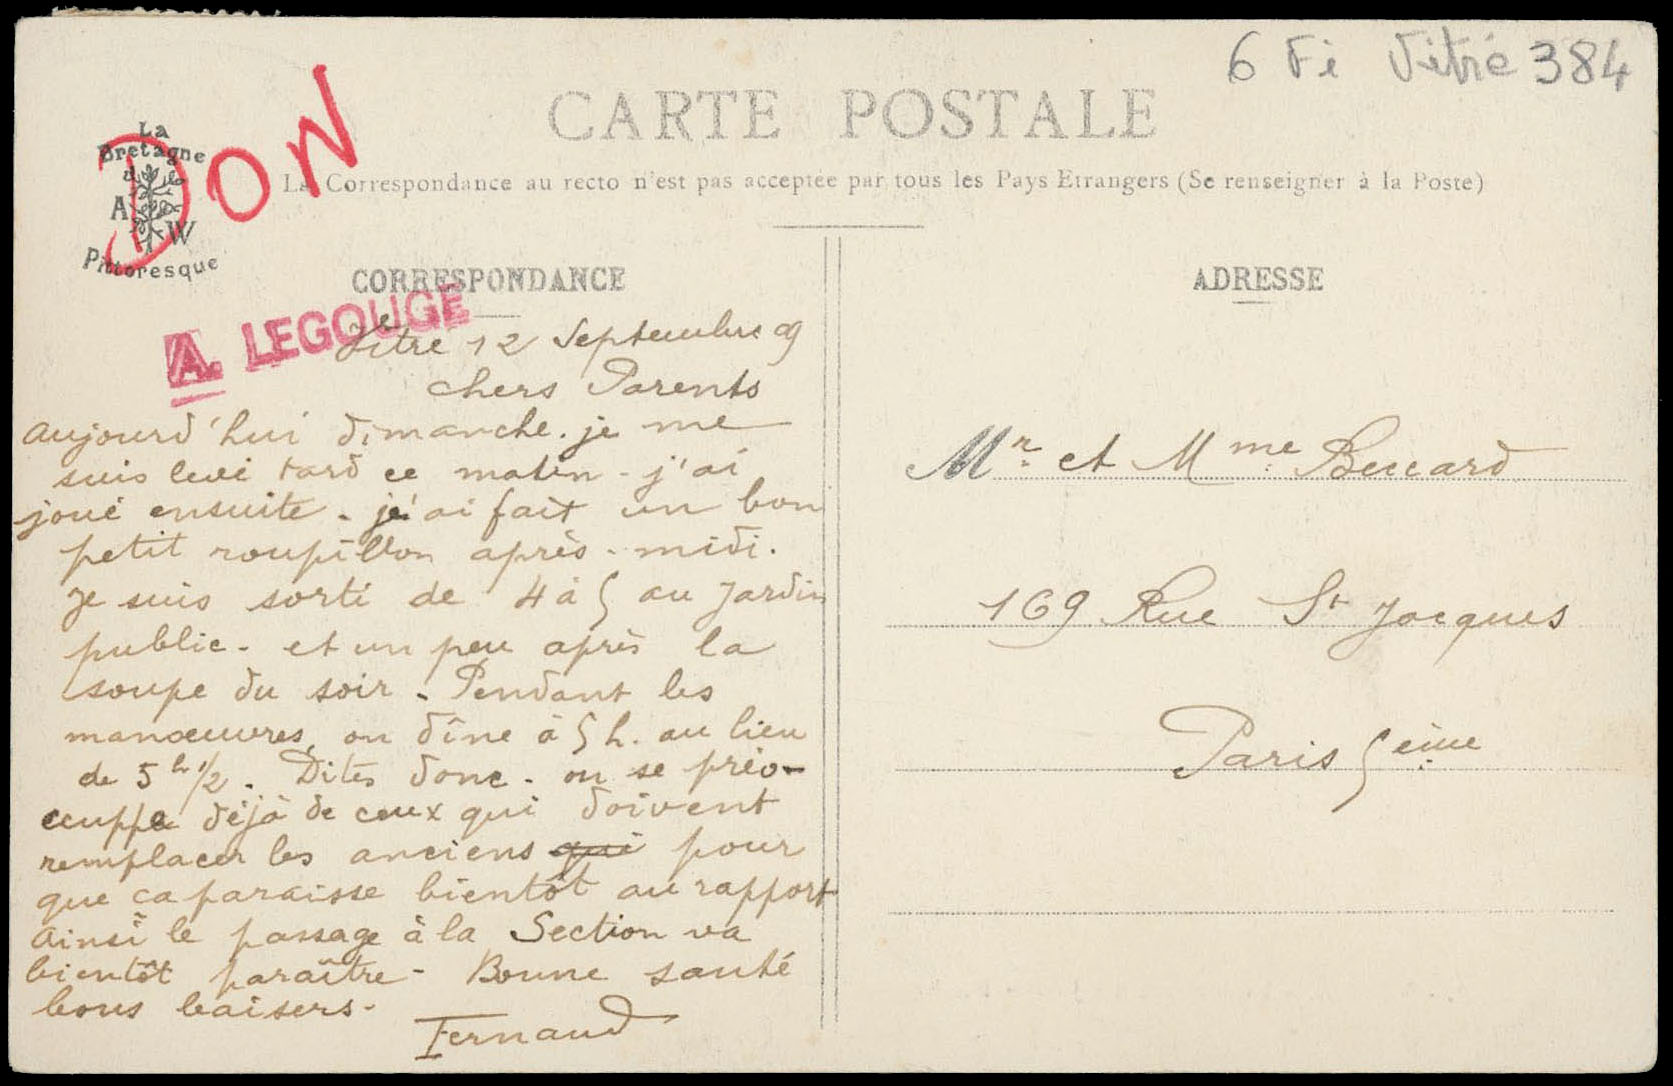 6 Fi Vitré 384
DON
La
Bretagne
A W
Pittoresque
CARTE POSTALE
La Correspondance au recto n'est pas acceptée par tous les Pays Etrangers (Se renseigner à la Poste)
CORRESPONDANCE
A. LEGOUGÉ
Vitré 12 Septembre 09
chers Parents
aujourd'hui dimanche. je me
suis levé tard ce matin - j'ai
joué ensuite - j'ai fait un bon
petit roupillon après-midi.
Je suis sorti de 4 à 5 au Jardin
public - et un peu après la
soupe du soir - Pendant les
manœuvres, on dîne à 5 h. au lieu
de 5 h 1/2. Dites donc - on se préo-
ccuppe déjà de ceux qui doivent
remplacer les anciens qui pour
que ca paraisse bientôt au rapport
Ainsi le passage à la Section va
bientôt paraître - Bonne santé
bons baisers -
Fernand
ADRESSE
Mr. et Mme
169 Rue St Jacques
Paris 5ème